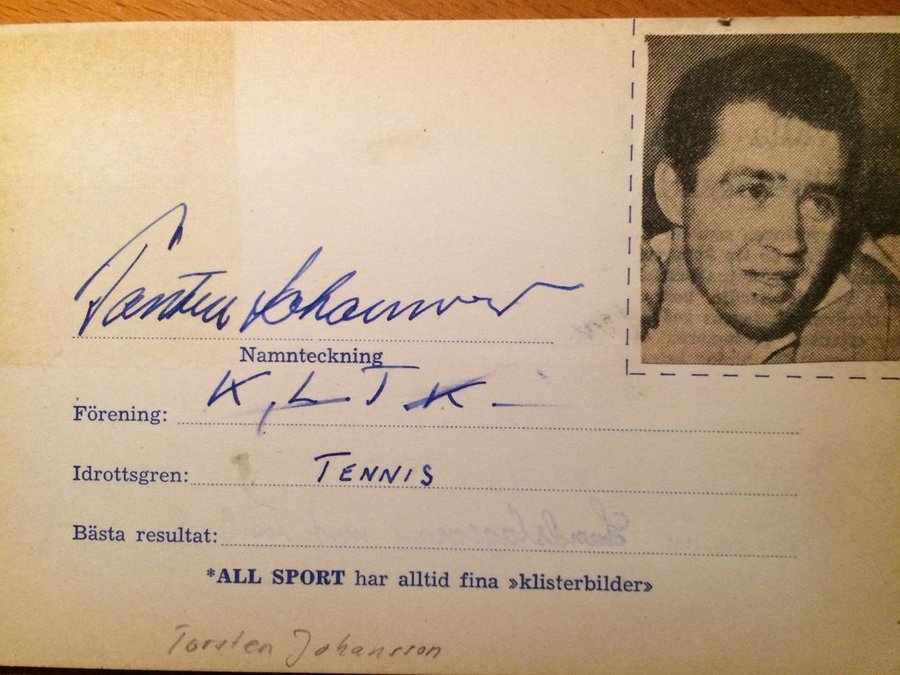 Torsten Johansson
Namnteckning
Förening: K.L.T.K.
Idrottsgren: TENNIS
Bästa resultat:
*ALL SPORT har alltid fina »klisterbilder»
Torsten Johansson